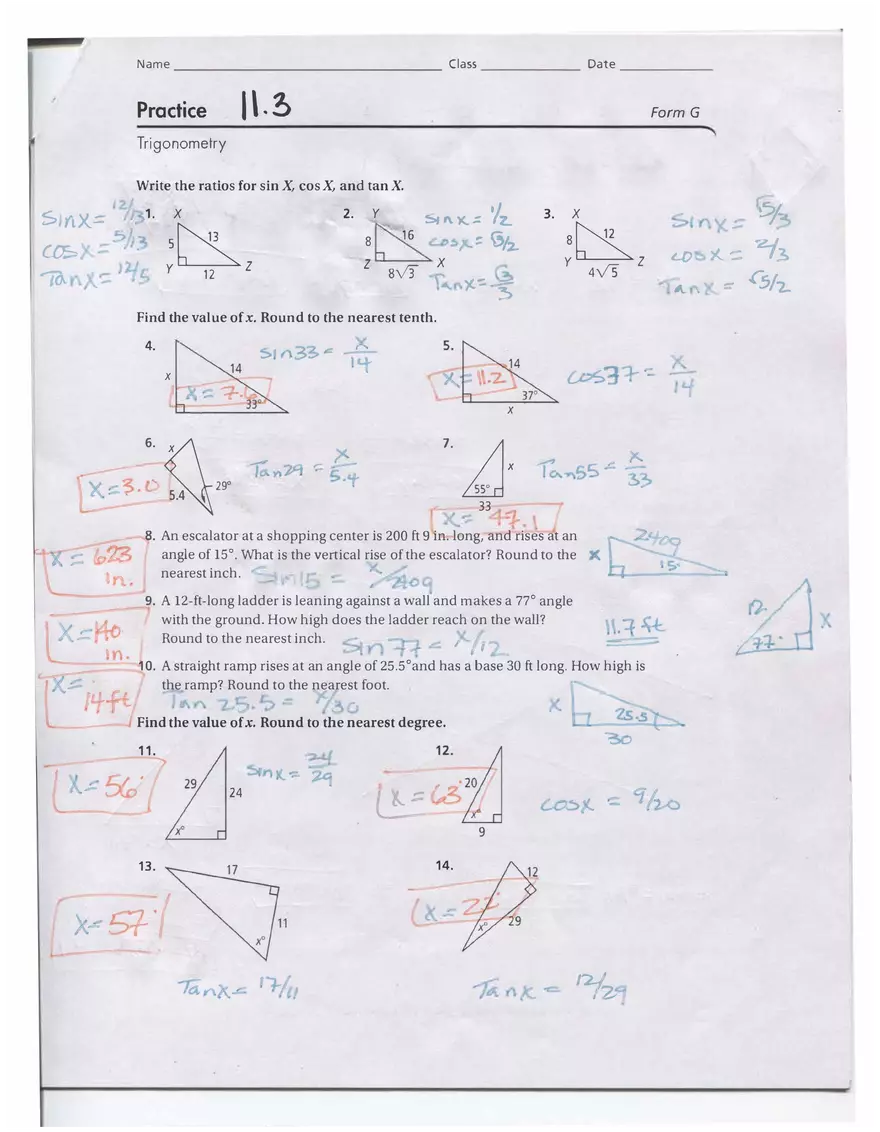 Name Class Date
Practice 11.3 Form G
Trigonometry
Write the ratios for sin X, cos X, and tan X.
Sinx= 12/13 1. X 5 13 Y 12 Z
cosx= 5/13
Tanx= 12/5
2. Y 8 16 Z 8√3 X
Sinx= 1/2
cosx= √3/2
Tanx= √3/3
3. X 8 12 Y 4√5 Z
Sinx= √5/3
cosx= 2/3
Tanx= √5/2
Find the value of x. Round to the nearest tenth.
4. x 14 33° sin33= x/14
x= 7.6
5. 14 37° x cos37= x/14
x= 11.2
6. x 5.4 29° Tan29 = x/5.4
x=3.0
7. x 55° 33 Tan55= x/33
x= 47.1
8. An escalator at a shopping center is 200 ft 9 in. long, and rises at an
angle of 15°. What is the vertical rise of the escalator? Round to the
nearest inch. Sin15 = x/2409
x= 623 in.
x 2409 15°
9. A 12-ft-long ladder is leaning against a wall and makes a 77° angle
with the ground. How high does the ladder reach on the wall?
Round to the nearest inch. Sin77= x/12
11.7 ft
x=140 in.
12 77° x
10. A straight ramp rises at an angle of 25.5°and has a base 30 ft long. How high is
the ramp? Round to the nearest foot.
Tan 25.5= x/30
x= 14ft
x 25.5 30
Find the value of x. Round to the nearest degree.
11. 29 24 x° sinx= 24/29
x=56°
12. 20 x° 9 cosx = 9/20
x=63°
13. 17 11 x°
x=57°
Tanx= 17/11
14. 12 29 x°
x=22°
Tanx = 12/29